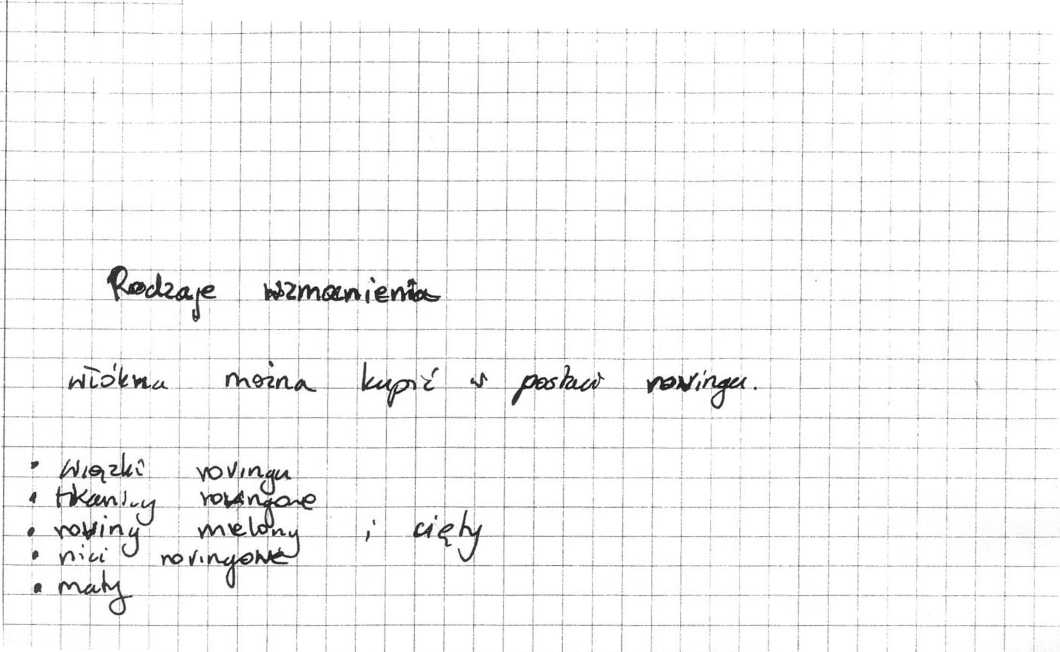 Rodzaje wzmocnienia
włókna można kupić w postaci rowingu.
• wiązki rovingu
• tkaniny rowingowe
• rowing mielony i cięty
• nici rovingowe
• maty